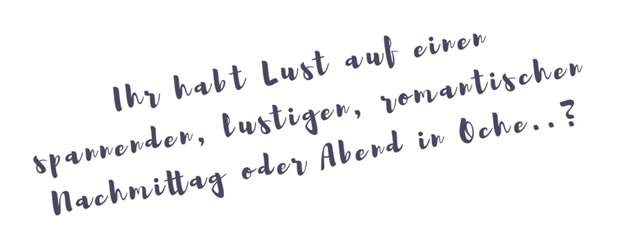 Ihr habt Lust auf einen
spannenden, lustigen, romantischen
Nachmittag oder Abend in Oche..?